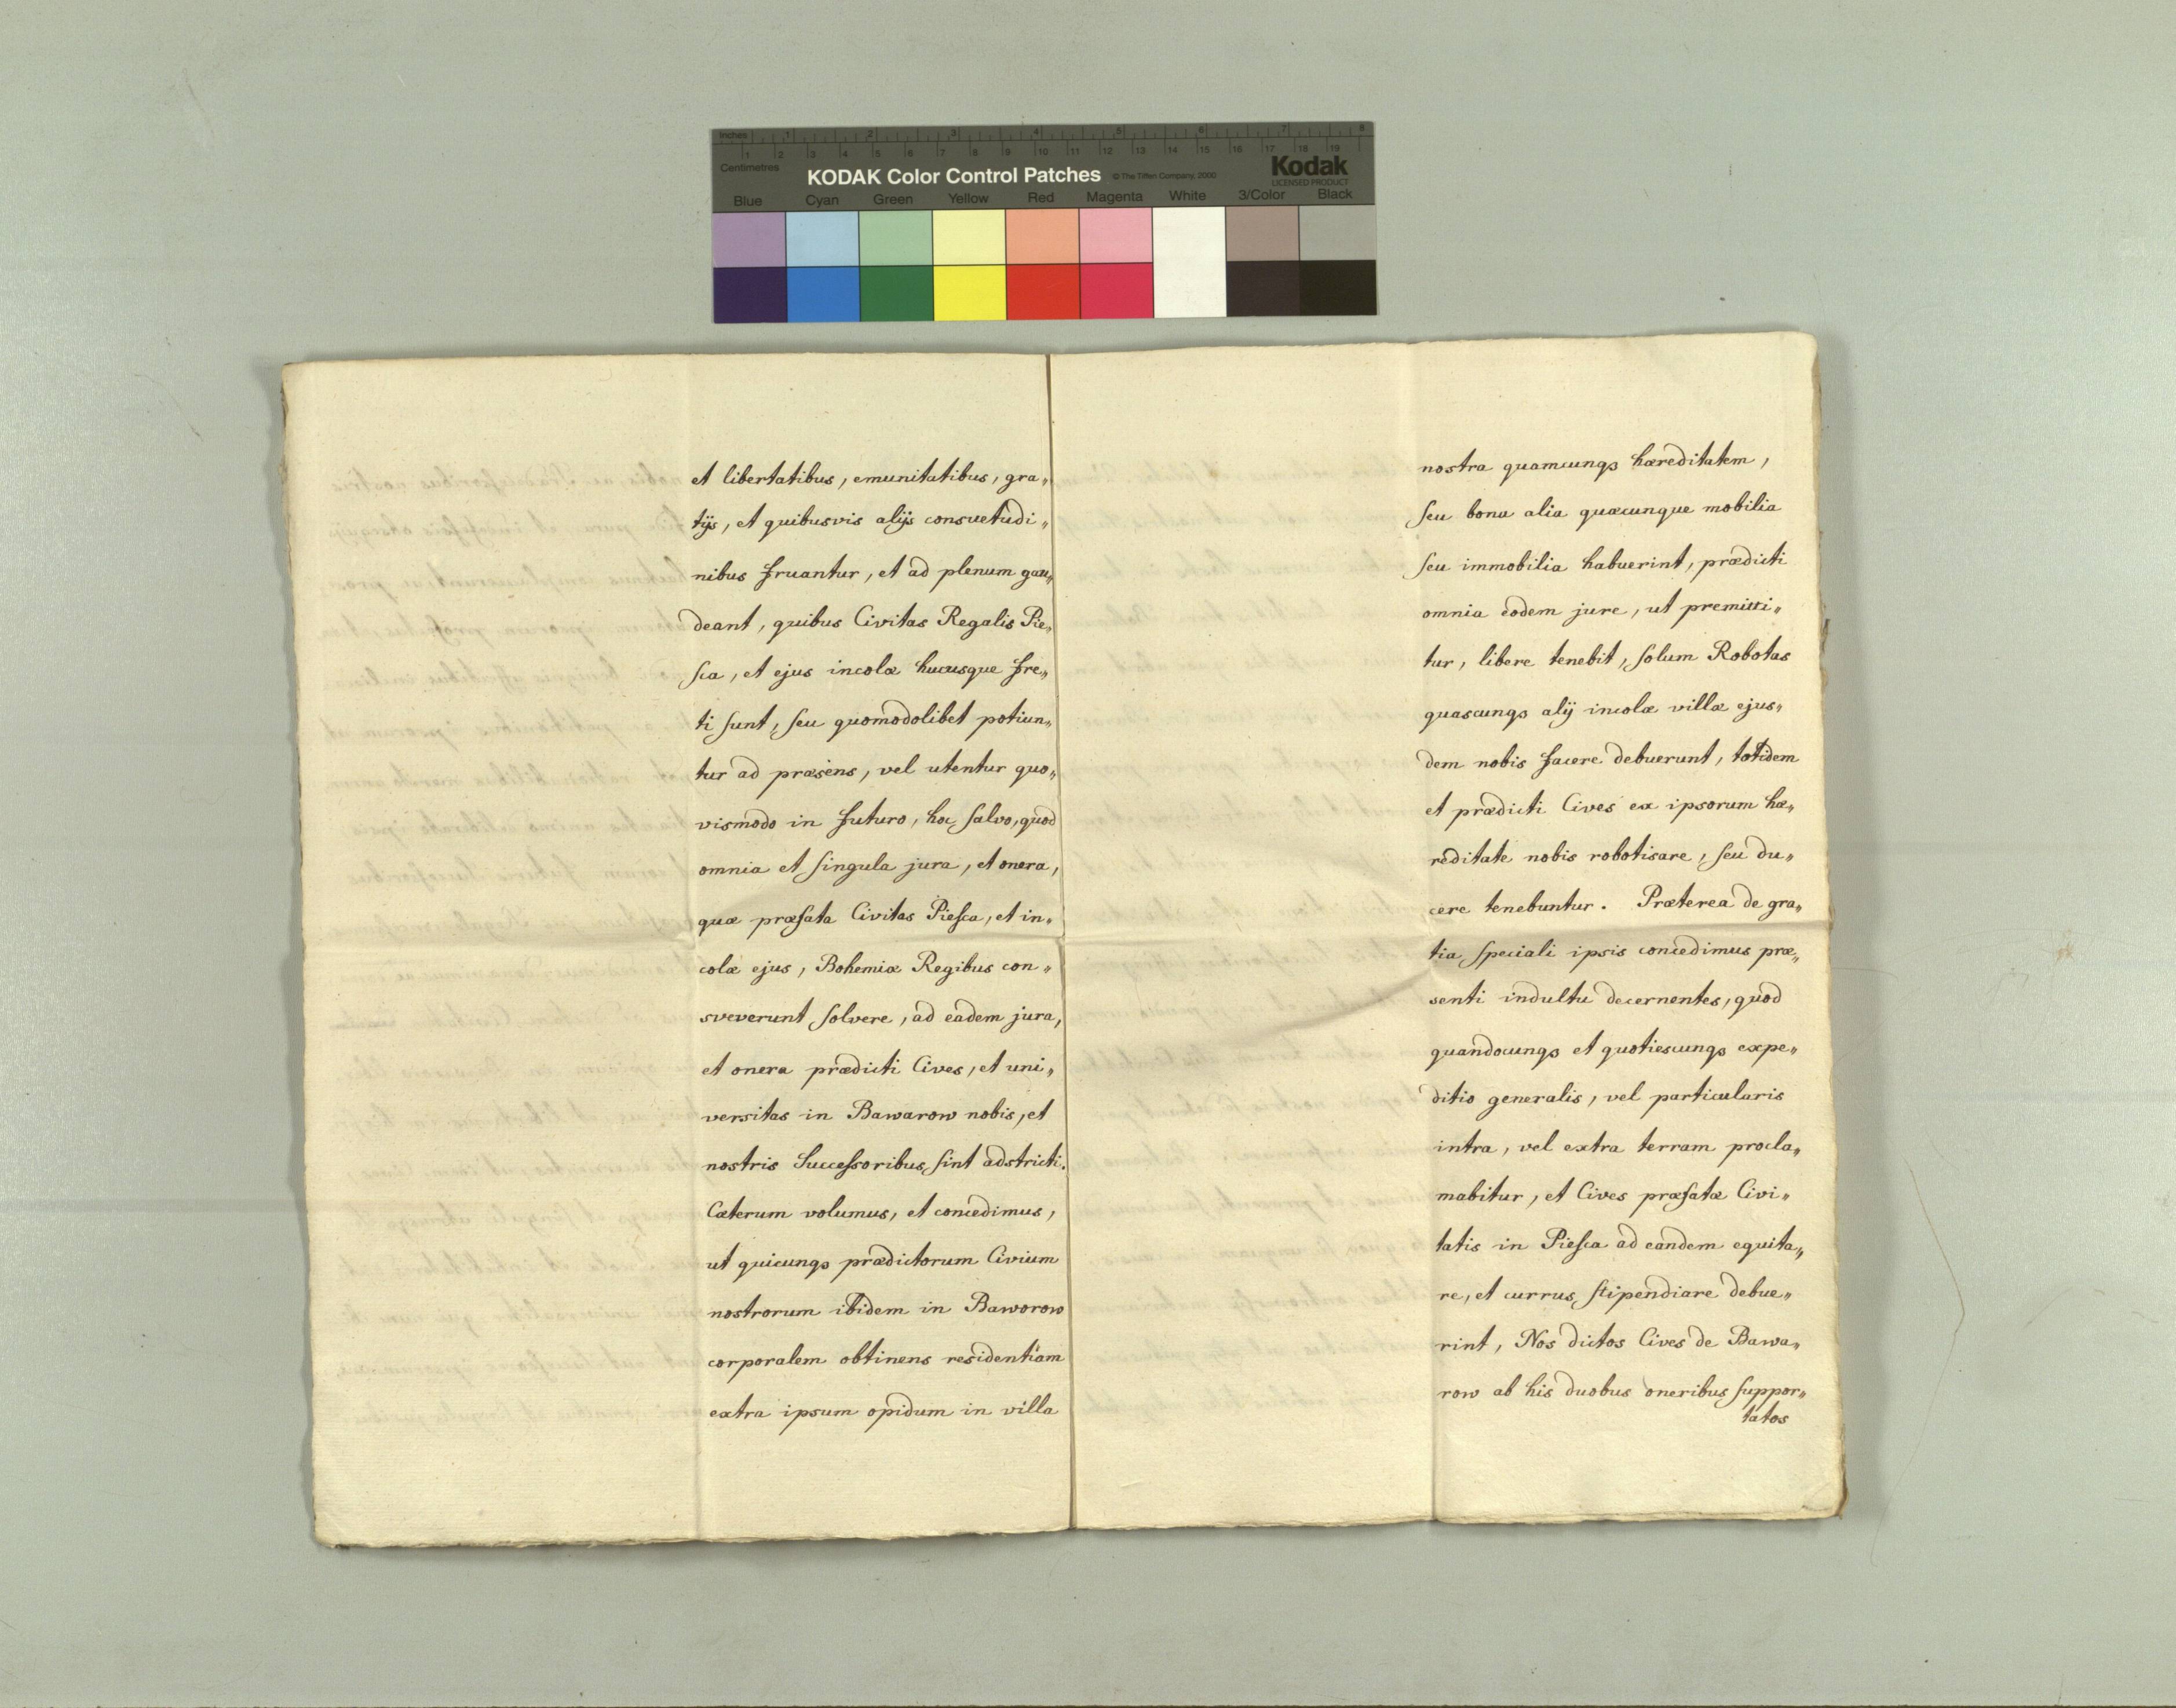 Inches 1 2 3 4 5 6 7 8
Centimetres 1 2 3 4 5 6 7 8 9 10 11 12 13 14 15 16 17 18 19
KODAK Color Control Patches © The Tiffen Company, 2000 Kodak
LICENSED PRODUCT
Blue Cyan Green Yellow Red Magenta White 3/Color Black
et libertatibus, emunitatibus, gra„
tijs, et quibusvis alijs consvetudi„
nibus fruantur, et ad plenum gau„
deant, quibus Civitas Regalis Pie„
sca, et ejus incolæ hucusque fre„
ti sunt, seu quomodolibet potiun„
tur ad præsens, vel utentur quo„
vismodo in futuro, hoc salvo, quod
omnia et singula jura, et onera,
quæ præfata Civitas Piesca, et in„
colæ ejus, Bohemiæ Regibus con„
sveverunt solvere, ad eadem jura,
et onera prædicti Cives, et uni„
versitas in Bawarow nobis, et
nostris Successoribus sint adstricti.
Cæterum volumus, et concedimus,
ut quicunqs prædictorum Civium
nostrorum ibidem in Baworow
corporalem obtinens residentiam
extra ipsum opidum in villa
nostra quamcunqs hæreditatem,
seu bona alia quæcunque mobilia
seu immobilia habuerint, prædicti
omnia eodem jure, ut premitti„
tur, libere tenebit, solum Robotas
quascunqs alij incolæ villæ ejus„
dem nobis facere debuerunt, totidem
et prædicti Cives ex ipsorum hæ„
reditate nobis robotisare, seu du„
cere tenebuntur. Præterea de gra„
tia speciali ipsis concedimus præ„
senti indultu decernentes, quod
quandocunqs et quotiescunqs expe„
ditio generalis, vel particularis
intra, vel extra terram procla„
mabitur, et Cives præfatæ Civi„
tatis in Piesca ad eandem equita„
re, et currus stipendiare debue„
rint, Nos dictos Cives de Bawa„
row ab his duobus oneribus suppor„
tatos